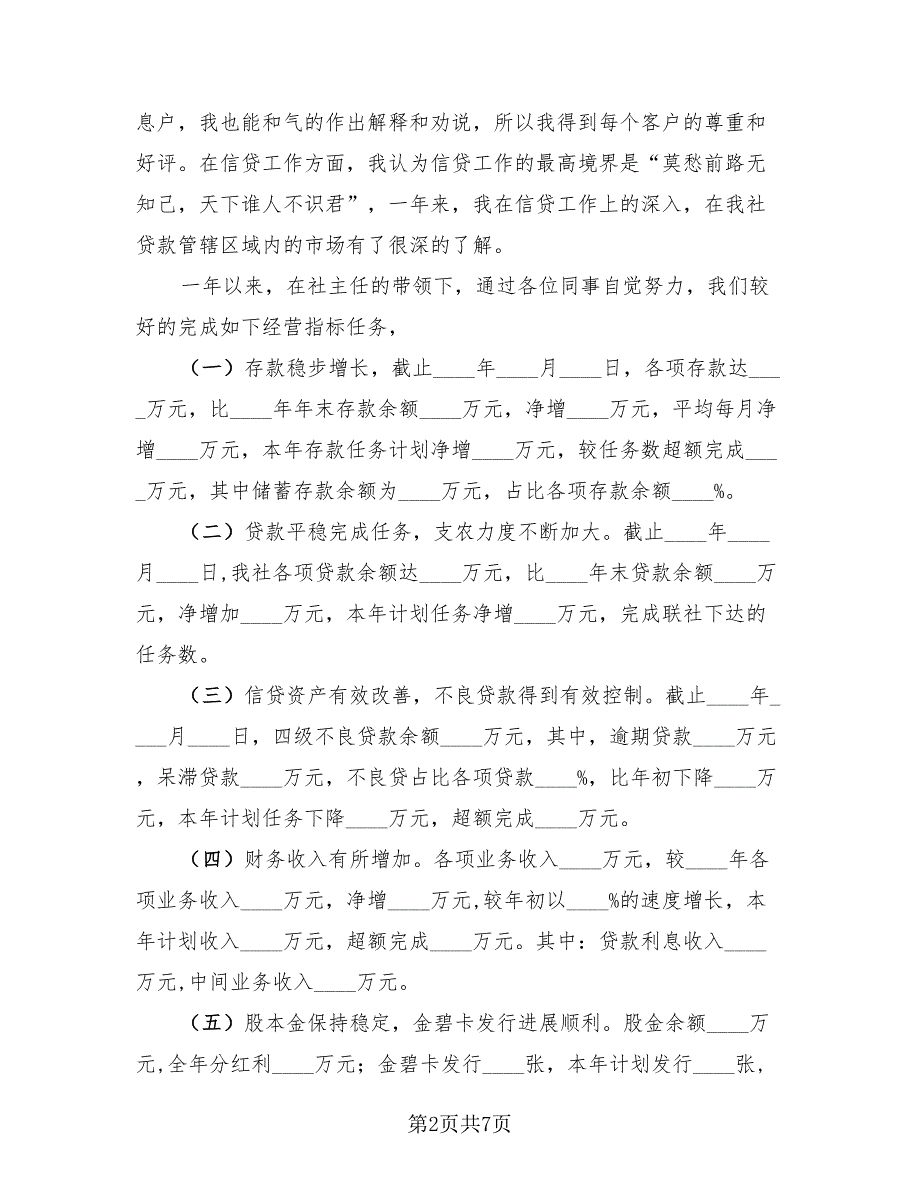 息户，我也能和气的作出解释和劝说，所以我得到每个客户的尊重和
好评。在信贷工作方面，我认为信贷工作的最高境界是“莫愁前路无
知己，天下谁人不识君”，一年来，我在信贷工作上的深入，在我社
贷款管辖区域内的市场有了很深的了解。
一年以来，在社主任的带领下，通过各位同事自觉努力，我们较
好的完成如下经营指标任务，
（一）存款稳步增长，截止____年____月____日，各项存款达___
_万元，比____年年末存款余额____万元，净增____万元，平均每月净
增____万元，本年存款任务计划净增____万元，较任务数超额完成___
_万元，其中储蓄存款余额为____万元，占比各项存款余额____%。
（二）贷款平稳完成任务，支农力度不断加大。截止____年____
月____日,我社各项贷款余额达____万元，比____年末贷款余额____万
元，净增加____万元，本年计划任务净增____万元，完成联社下达的
任务数。
（三）信贷资产有效改善，不良贷款得到有效控制。截止____年_
___月____日，四级不良贷款余额____万元，其中，逾期贷款____万元
，呆滞贷款____万元，不良贷占比各项贷款____%，比年初下降____万
元，本年计划任务下降____万元，超额完成____万元。
（四）财务收入有所增加。各项业务收入____万元，较____年各
项业务收入____万元，净增____万元,较年初以____%的速度增长，本
年计划收入____万元，超额完成____万元。其中：贷款利息收入____
万元,中间业务收入____万元。
（五）股本金保持稳定，金碧卡发行进展顺利。股金余额____万
元,全年分红利____万元；金碧卡发行____张，本年计划发行____张,
第2页共7页